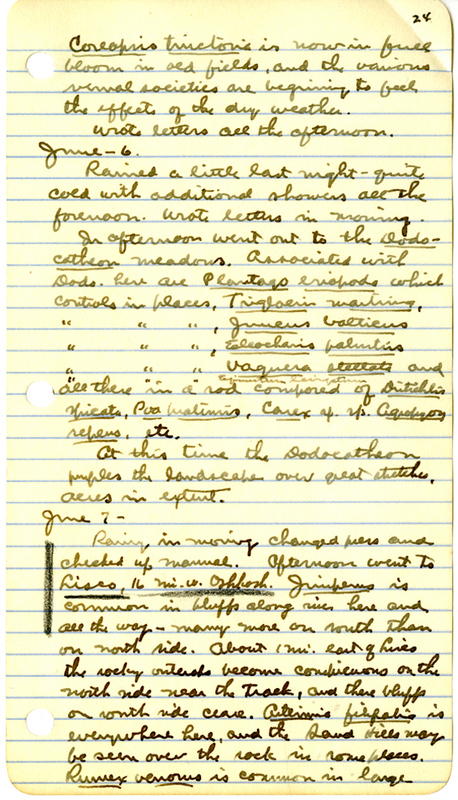 24
Coreopsis tinctoria is now in full
bloom in old fields, and the various
vernal societies are beginning to feel
the effects of the dry weather.
Wrote letters all the afternoon.
June - 6.
Rained a little last night - quite
cold with additional showers all the
forenoon. Wrote letters in morning.
In afternoon went out to the Dode-
catheon meadows. Associated with
Dode. here are Plantago eriopoda which
controls in places, Triglochin maritima,
" " ", Juncus balticus
" " ", Eleocharis palustris
" " ", and
all there in a sod composed of Distichlis
spicata, Poa pratensis, Carex sp. sp. Agropyron
repens, etc.
At this time the Dodecatheon
purples the landscape over great stretches,
acres in extent.
June 7 -
Rainy, in morning changed and
checked up manual. Afternoon went to
Lisco, 16 mi. w. Oshkosh. Juniperus is
common in bluffs along river here and
all the way - many more on south than
on north side. About 1 mi. east of Lisco
the rocky outcrops become conspicuous on the
north side near the track, and there bluffs
on south side cease. Artemisia filifolia is
everywhere here, and the Sand Hills may
be seen over the rock in some places.
Rumex venosus is common in large